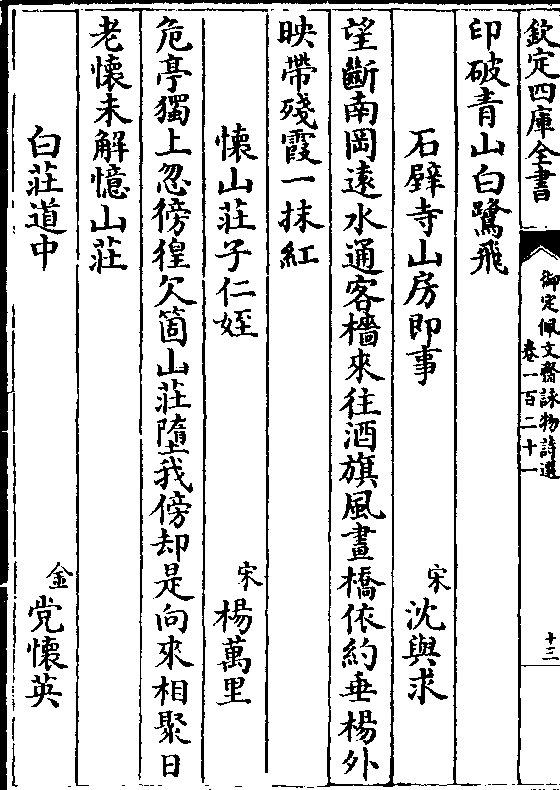 欽定四庫全書
御定佩文齋詠物詩選
卷一百二十一
十三
印破青山白鷺飛
石壁寺山房即事
宋
沈與求
望斷南岡遠水通客檣來往酒旗風畫橋依約垂楊外
映帶殘霞一抹紅
懷山莊子仁姪
宋
楊萬里
危亭獨上忽徬徨欠箇山莊墮我傍却是向來相聚日
老懷未解憶山莊
白莊道中
金
党懷英